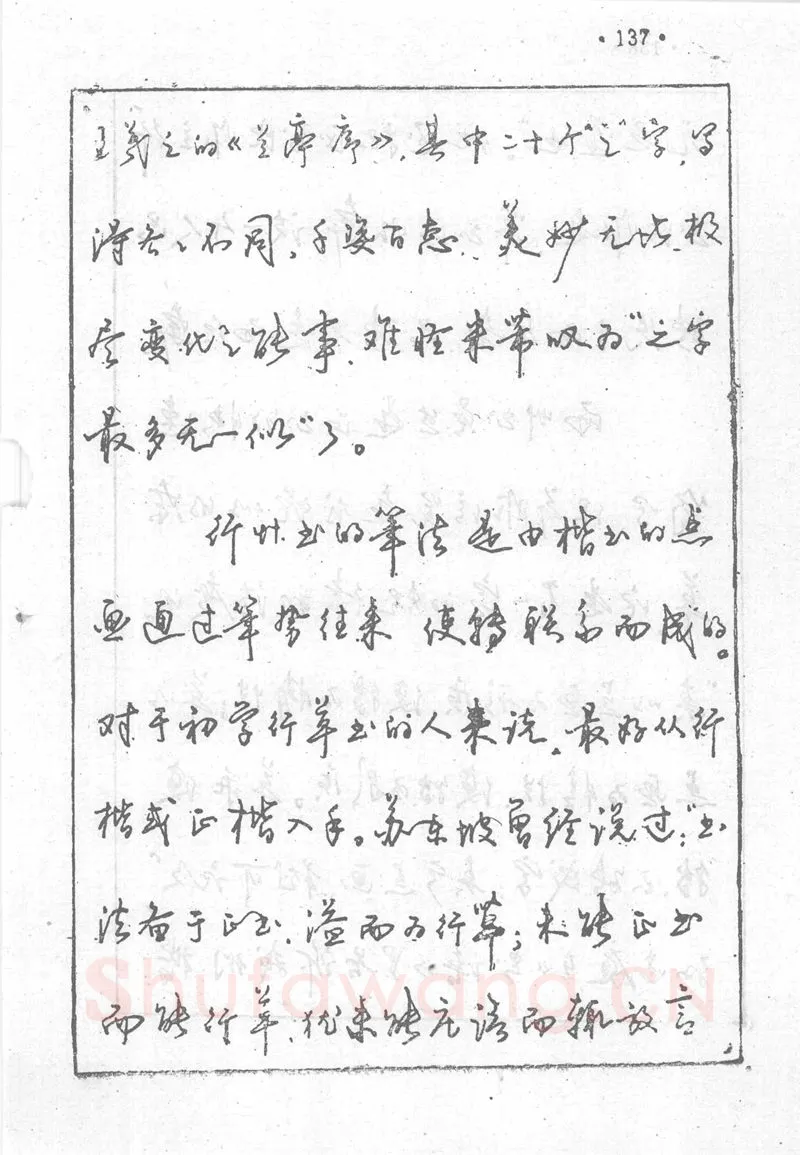 ·137·
王羲之的《兰亭序》,其中二十个"之"字,写
得各、不同,千姿百态,美妙无比,极
尽变化之能事,难怪米芾叹为"之字
最多无一似"了。
行草书的笔法是由楷书的点
画通过笔势往来 使转联系而成的。
对于初学行草书的人来说,最好从行
楷或正楷入手。苏东坡曾经说过:"书
法备于正书,溢而为行草;未能正书
而能行草,犹未能庄语而辄放言,
Shufawang.CN